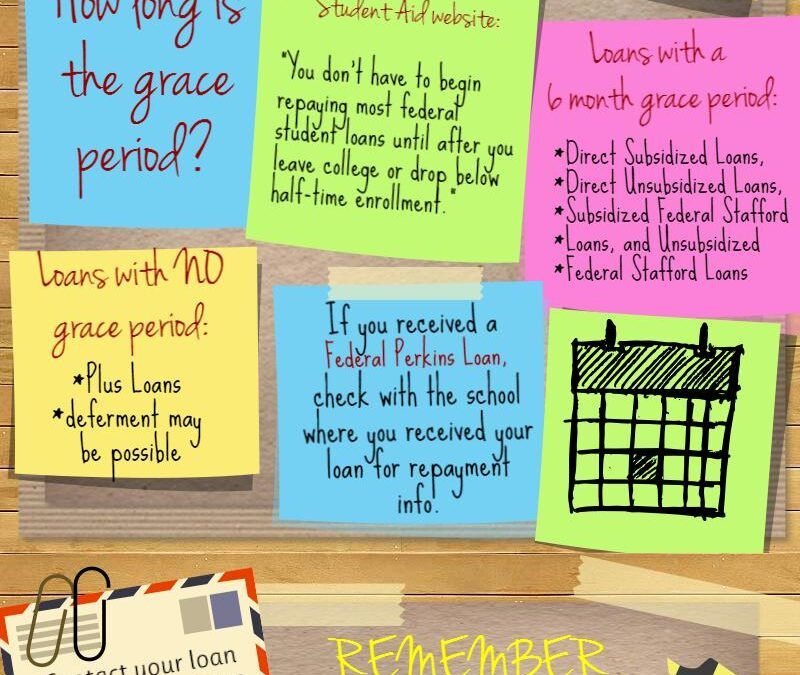 How long is
the grace
period?
Student Aid website:
"You don't have to begin
repaying most federal
student loans until after you
leave college or drop below
half-time enrollment."
Loans with a
6 month grace period:
*Direct Subsidized Loans,
*Direct Unsubsidized Loans,
*Subsidized Federal Stafford
*Loans, and Unsubsidized
*Federal Stafford Loans
Loans with NO
grace period:
*Plus Loans
*deferment may
be possible
If you received a
Federal Perkins Loan,
check with the school
where you received your
loan for repayment
info.
Contact your loan
REMEMBER